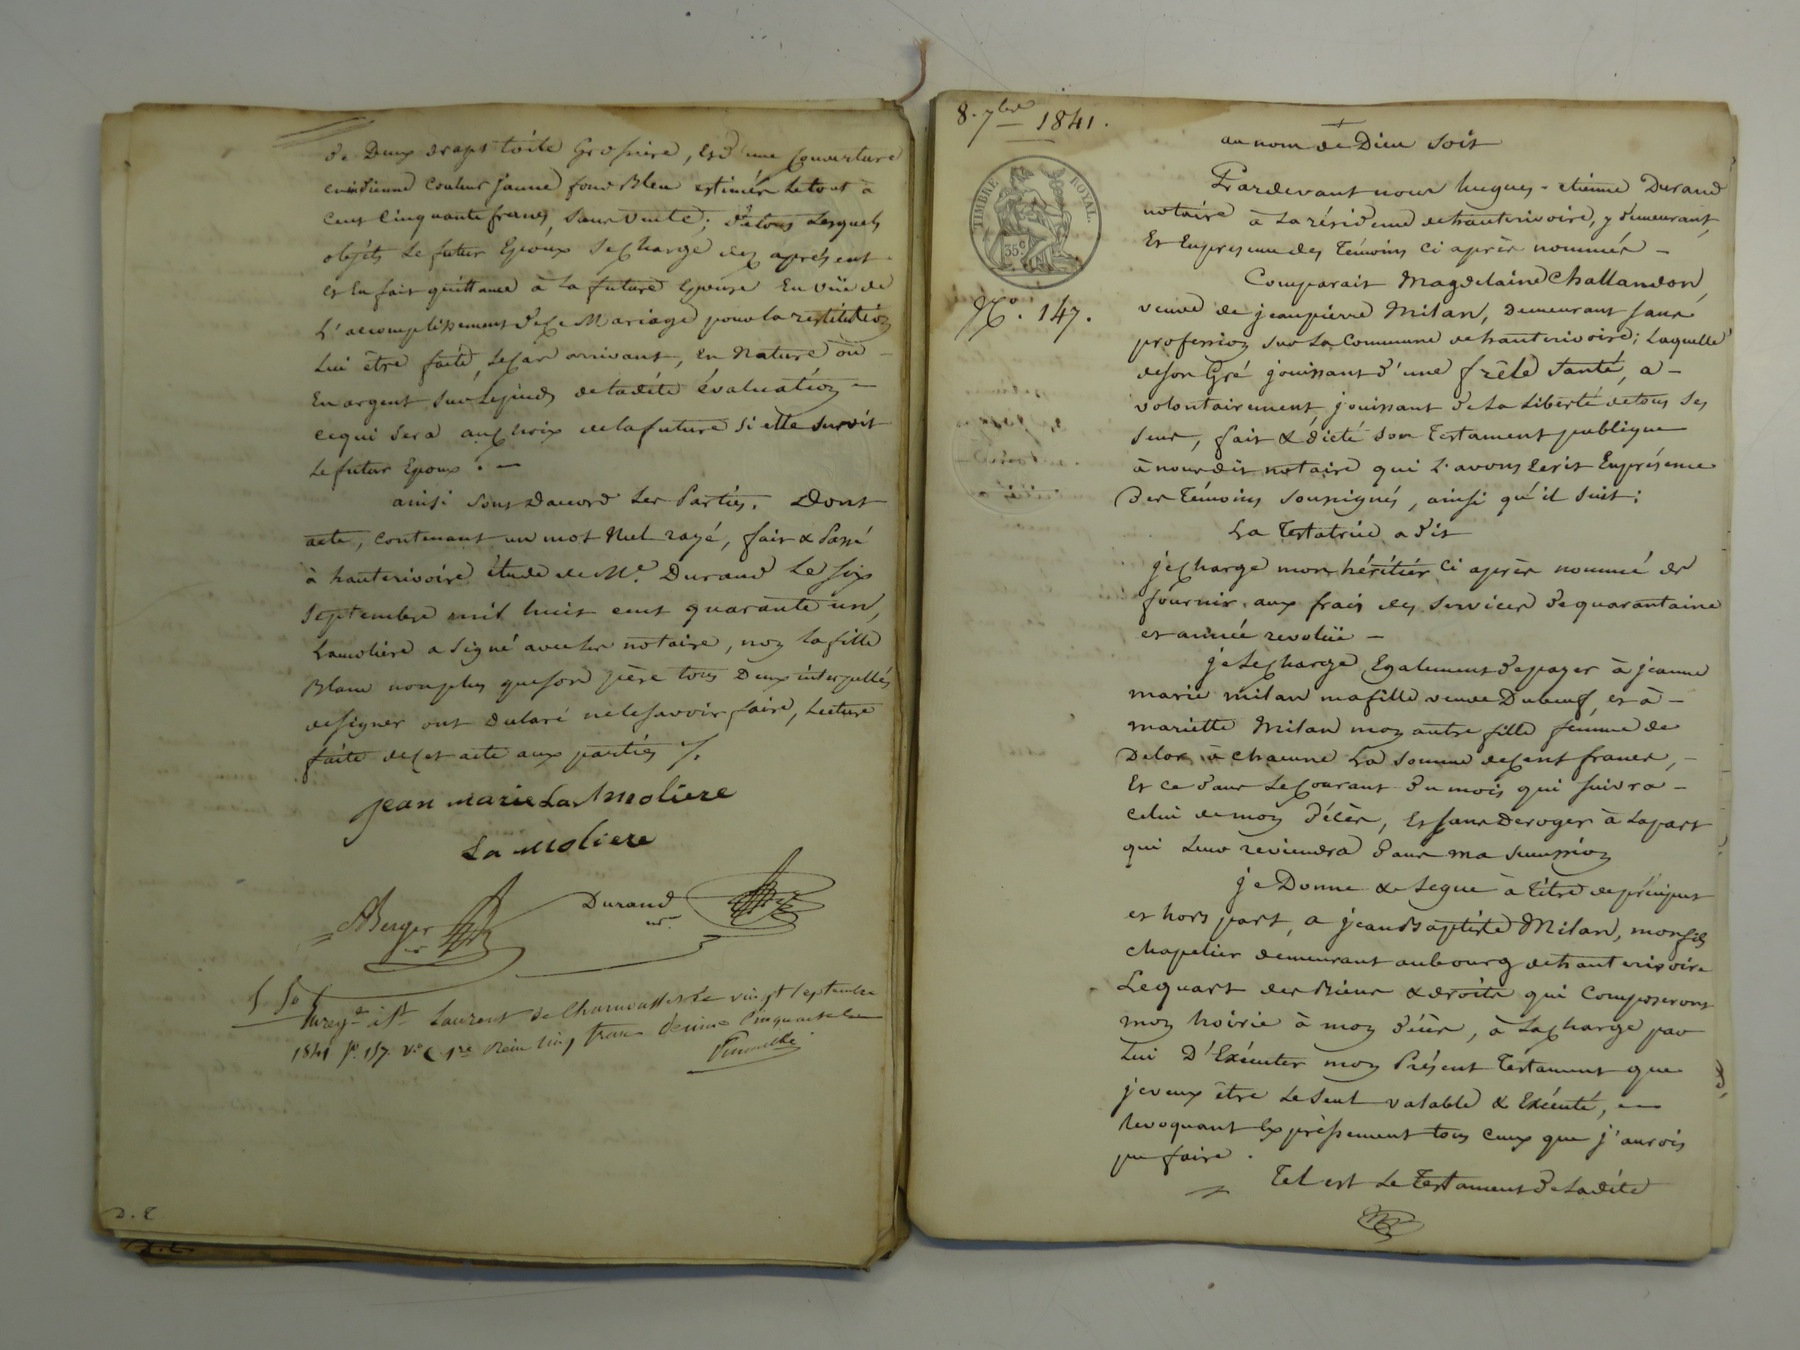 de Deux draps toile Grossiere, Et d'une Couverture
indienne Couleur Jaune fond Bleu estimés Le tout à
Cent Cinquante francs, Sans Vente; De tous Lesquels
objets Le futur Epoux Se Charge dez aprésent
et En fait quittance à La future Epouse En vüe de
L'accomplissement De Ce Mariage pour la restitution
Lui être faite, Le Cas arrivant, En Nature où
En argent Sur Le pied de ladite évaluation
Ce qui Sera au Choix de la future Si elle Survit
Le futur Epoux. —
ainsi Sont Daccord Les Parties. Dont
acte, Contenant un mot Nul rayé, fait & Passé
à hauterivoire étude de Me. Durand Le Six
Septembre mil huit cent quarante un,
Lamolière a Signé avec les notaire, non la fille
Blanc non plus que son père tous Deux interpellés
de signer ont Déclaré ne le savoir faire, Lecture
faite de Cet acte aux parties /.
Jean marie La Moliere
La Moliere
ABerger nre
Durand nre.
5 50
Enregé. à St. Laurent de Chamousset le vingt Septembre
1841 fo. 157. vo. C 1re Reçu Cinq francs decime Cinquante Cen
D. E
8. 7bre 1841.
TIMBRE ROYAL.
55 c
No. 147.
au nom de Dieu Soit
Pardevant nous hugues-etienne Durand
notaire à La résidence de hauterivoire, y demeurant,
Et En presence des Témoins Ci après nommés —
Comparait Magdelaine Challandon,
veuve de jean pierre Milan, Demeurant Sans
profession Sur La Commune de hauterivoire; Laquelle
de son Gré jouissant d'une frêle Santé, a —
volontairement, jouissant De La Liberté de tous Ses
Sens, fait & dicté Son Testament publique
à nous dit notaire qui L'avons Ecrit En présence
Des Témoins Soussignés, ainsi qu'il Suit:
La Testatrice a Dit
je Charge mon héritier Ci après nommé de
fournir aux frais des Services De quarantaine
et année revolüe —
je Le Charge Egalement De payer à jeanne
marie milan ma fille veuve Dubœuf, et à —
mariette Milan mon autre fille femme de
Delor, à Chacune La Somme de Cent francs, —
Et ce Dans Le Courant Du mois qui Suivra —
Celui de mon Décès, Et Sans Deroger à La part
qui Leur reviendra Dans ma Succession
je Donne & Legue à Titre de préciput
et hors part, a jean Baptiste Milan, mon fils
chapelier demeurant au bourg de hauterivoire
Le quart des Biens & droits qui Composeront
mon hoirie à mon Décès, à La Charge par
Lui D'Exécuter mon Présent Testament que
je veux être Le Seul valable & Exécuté, —
Revoquant Expréssement tous Ceux que j'aurois
pu faire.
Tel est Le Testament De Ladite